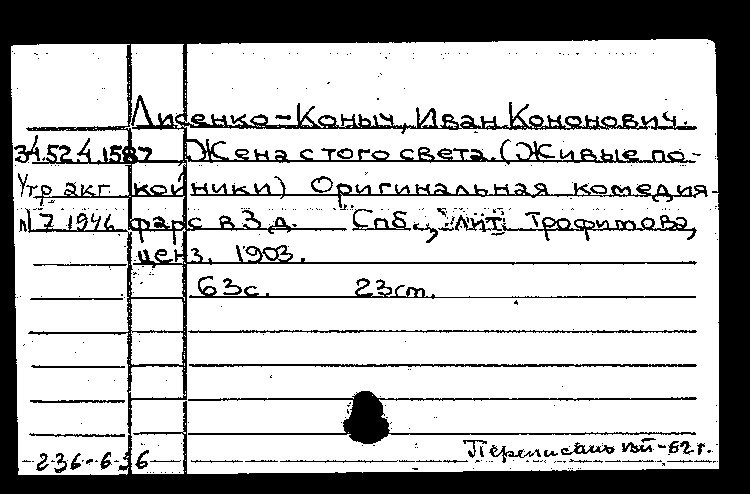 Лисенко-Коныч, Иван Кононович.
34.52.4.1587 Жена с того света. (Живые по-
Утр акт койники) Оригинальная комедия-
N 7 1946 фарс в 3 д. Спб., лит Трофимова,
ценз. 1903.
63с. 23cm.
236-636 Переписано -62 г.